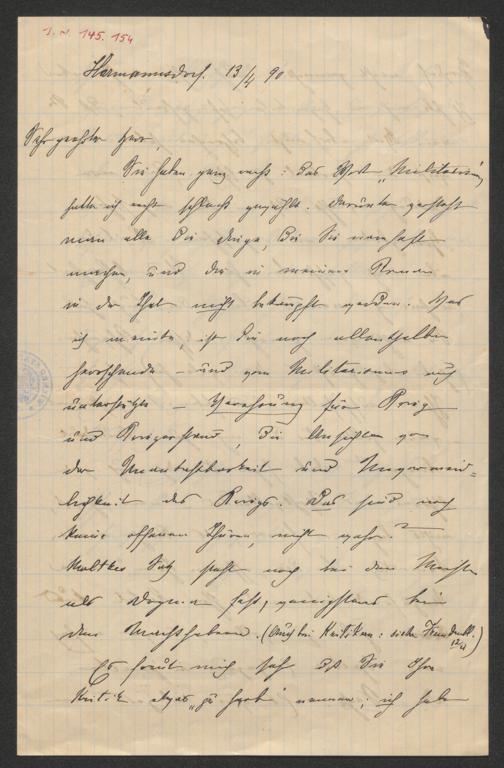 I. N. 145.154
Harmannsdorf. 13/4 90
Sehr geehrter Herr,
Sie haben ganz recht: das Wort „Militarismus"
hatte ich recht schlecht gewählt. Darunter versteht
man alle die Dinge, die Sie namhaft
machen, und die in meinem Roman
in der That nicht bekämpft werden. Was
ich meinte, ist die noch allenthalben
herrschende – und vom Militarismus auch
unterstützte – Verehrung für Krieg
und Kriegerstand, die Ansichten von
der Unantastbarkeit und Unvermeid=
lichkeit des Kriegs. Das sind noch
keine offenen Thüren, nicht wahr?
Moltkes Satz steht noch bei den Meisten
als Dogma fest, wenigstens bei
den Machthabern. (Auch bei Kritikern: siehe Fremdenbl. 12/4)
Es freut mich sehr daß Sie Ihre
Kritik etwas „zu hart" nennen; ich habe